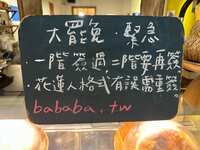 大罷免 緊急
一階簽過二階要再簽
花蓮人格式有誤需重簽
bababa.tw